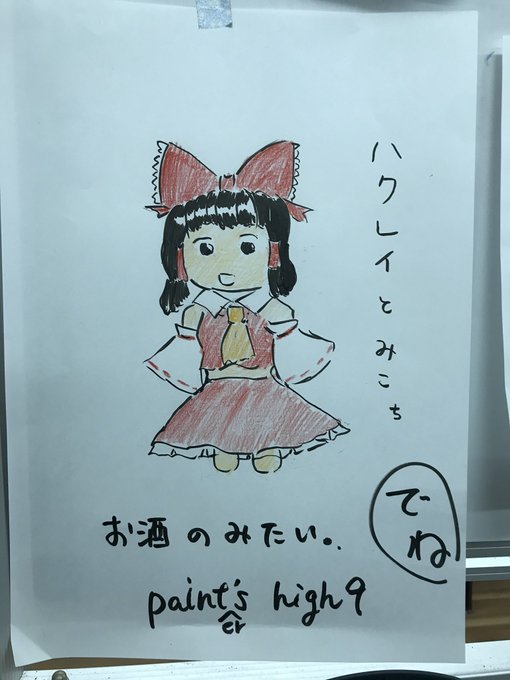 ハクレイとみこち
でね
お酒のみたい。
paint's high 9
er